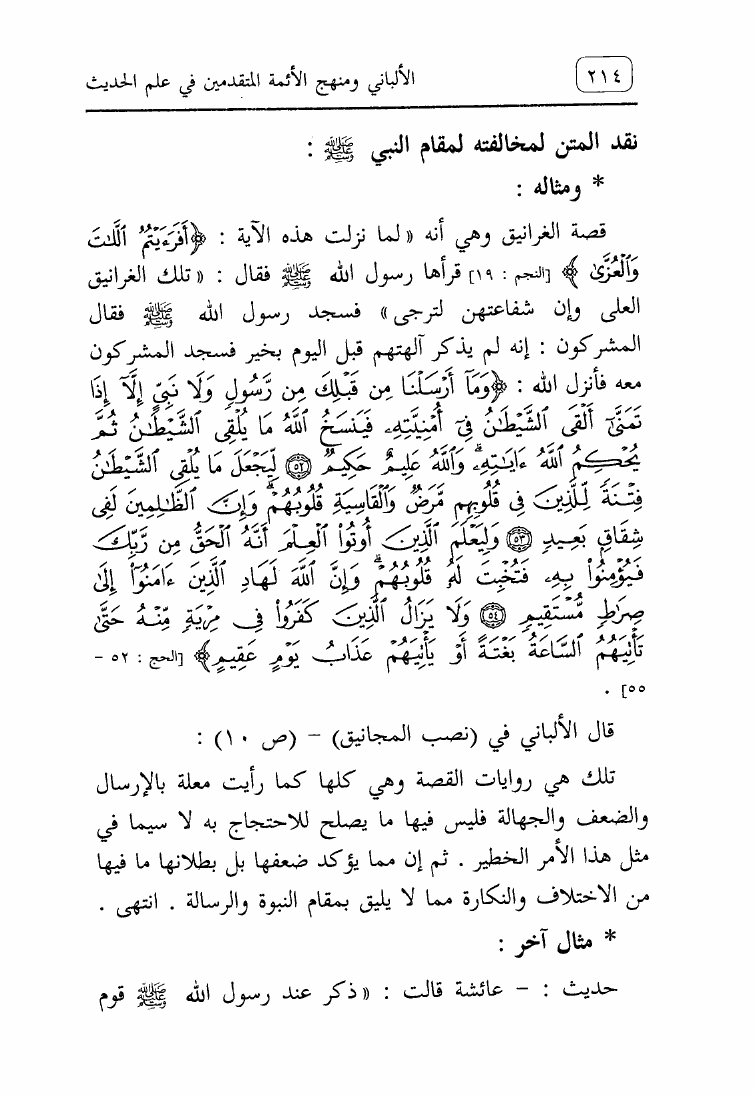 ٢١٤
الألباني ومنهج الأئمة المتقدمين في علم الحديث
نقد المتن لمخالفته لمقام النبي ﷺ :
* ومثاله :
قصة الغرانيق وهي أنه « لما نزلت هذه الآية : ﴿أَفَرَءَيْتُمُ ٱللَّٰتَ
وَٱلْعُزَّىٰ ﴾ [النجم : ١٩] قرأها رسول الله ﷺ فقال : « تلك الغرانيق
العلى وإن شفاعتهن لترجى» فسجد رسول الله ﷺ فقال
المشركون : إنه لم يذكر آلهتهم قبل اليوم بخير فسجد المشركون
معه فأنزل الله : ﴿وَمَآ أَرْسَلْنَا مِن قَبْلِكَ مِن رَّسُولٍ وَلَا نَبِىٍّ إِلَّآ إِذَا
تَمَنَّىٰٓ أَلْقَى ٱلشَّيْطَٰنُ فِىٓ أُمْنِيَّتِهِۦ فَيَنسَخُ ٱللَّهُ مَا يُلْقِى ٱلشَّيْطَٰنُ ثُمَّ
يُحْكِمُ ٱللَّهُ ءَايَٰتِهِۦ ۗ وَٱللَّهُ عَلِيمٌ حَكِيمٌ ﴿٥٢﴾ لِّيَجْعَلَ مَا يُلْقِى ٱلشَّيْطَٰنُ
فِتْنَةً لِّلَّذِينَ فِى قُلُوبِهِم مَّرَضٌ وَٱلْقَاسِيَةِ قُلُوبُهُمْ ۗ وَإِنَّ ٱلظَّٰلِمِينَ لَفِى
شِقَاقٍۭ بَعِيدٍ ﴿٥٣﴾ وَلِيَعْلَمَ ٱلَّذِينَ أُوتُوا۟ ٱلْعِلْمَ أَنَّهُ ٱلْحَقُّ مِن رَّبِّكَ
فَيُؤْمِنُوا۟ بِهِۦ فَتُخْبِتَ لَهُۥ قُلُوبُهُمْ ۗ وَإِنَّ ٱللَّهَ لَهَادِ ٱلَّذِينَ ءَامَنُوٓا۟ إِلَىٰ
صِرَٰطٍ مُّسْتَقِيمٍ ﴿٥٤﴾ وَلَا يَزَالُ ٱلَّذِينَ كَفَرُوا۟ فِى مِرْيَةٍ مِّنْهُ حَتَّىٰ
تَأْتِيَهُمُ ٱلسَّاعَةُ بَغْتَةً أَوْ يَأْتِيَهُمْ عَذَابُ يَوْمٍ عَقِيمٍ﴾ [الحج : ٥٢ -
٥٥] .
قال الألباني في (نصب المجانيق) - (ص ١٠) :
تلك هي روايات القصة وهي كلها كما رأيت معلة بالإرسال
والضعف والجهالة فليس فيها ما يصلح للاحتجاج به لا سيما في
مثل هذا الأمر الخطير . ثم إن مما يؤكد ضعفها بل بطلانها ما فيها
من الاختلاف والنكارة مما لا يليق بمقام النبوة والرسالة . انتهى .
* مثال آخر :
حديث : - عائشة قالت : « ذكر عند رسول الله ﷺ قوم